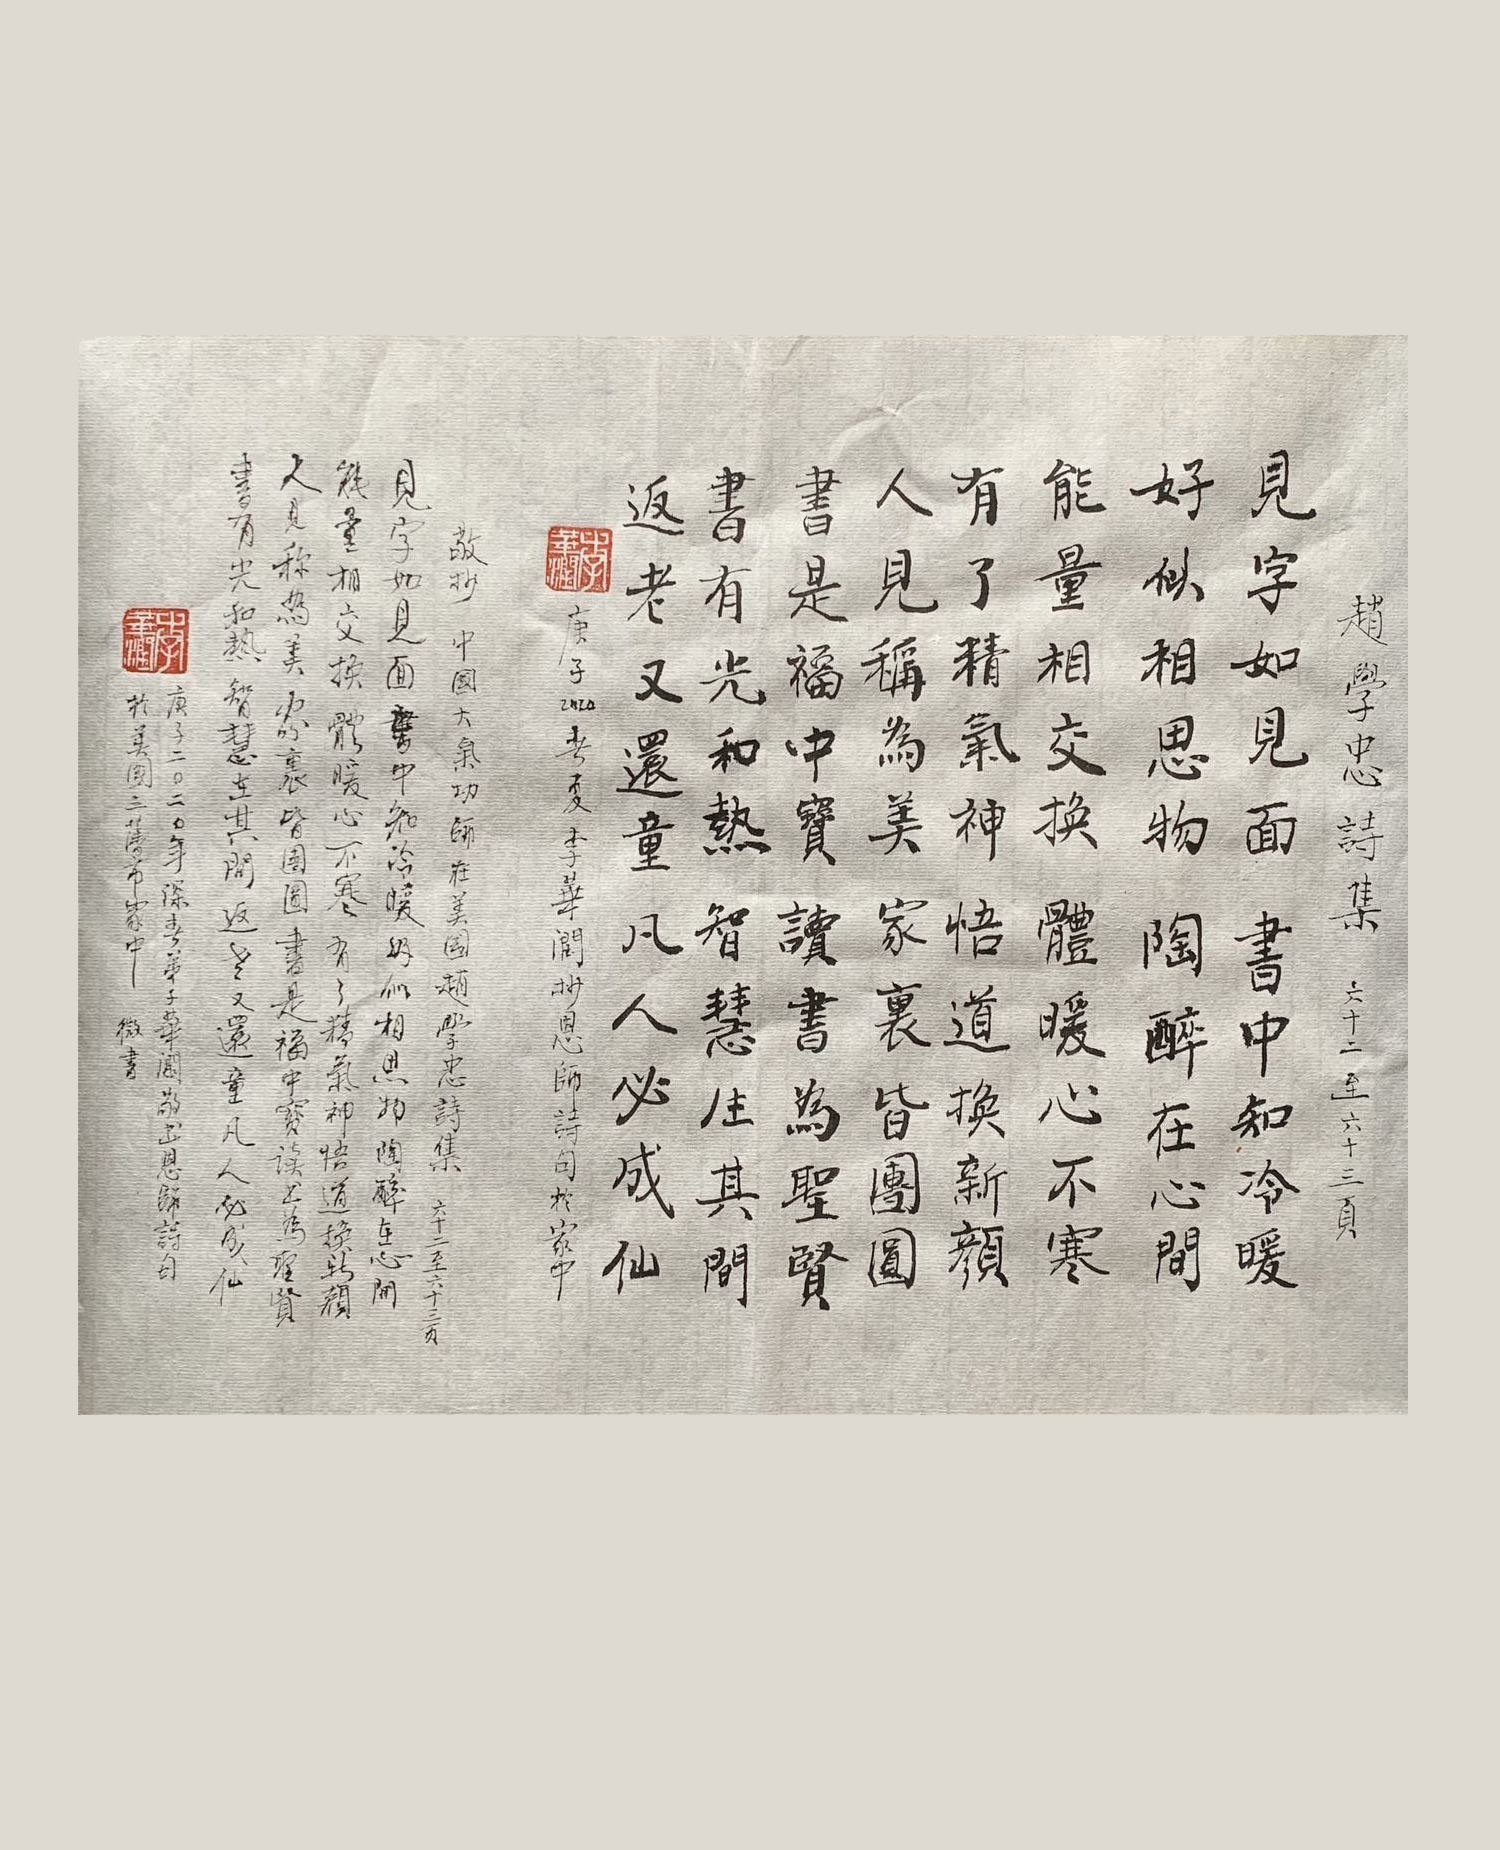 趙學忠詩集 六十二至六十三頁
見字如見面 書中知冷暖
好似相思物 陶醉在心間
能量相交換 體暖心不寒
有了精氣神 悟道換新顏
人見稱為美 家裏皆團圓
書是福中寶 讀書為聖賢
書有光和熱 智慧生其間
返老又還童 凡人必成仙
庚子2020春夏李華潤抄恩師詩句於家中
敬抄 中國大氣功師在美國趙學忠詩集 六十二至六十三頁
見字如見面書中知冷暖好似相思物陶醉在心間
能量相交換 體暖心不寒有了精氣神悟道換新顏
人見稱為美 家裏皆團圓書是福中寶讀書為聖賢
書有光和熱智慧在其間返老又還童凡人必成仙
庚子二〇二〇年深春弟子華潤敬書恩師詩句
於美國三藩市家中 微書